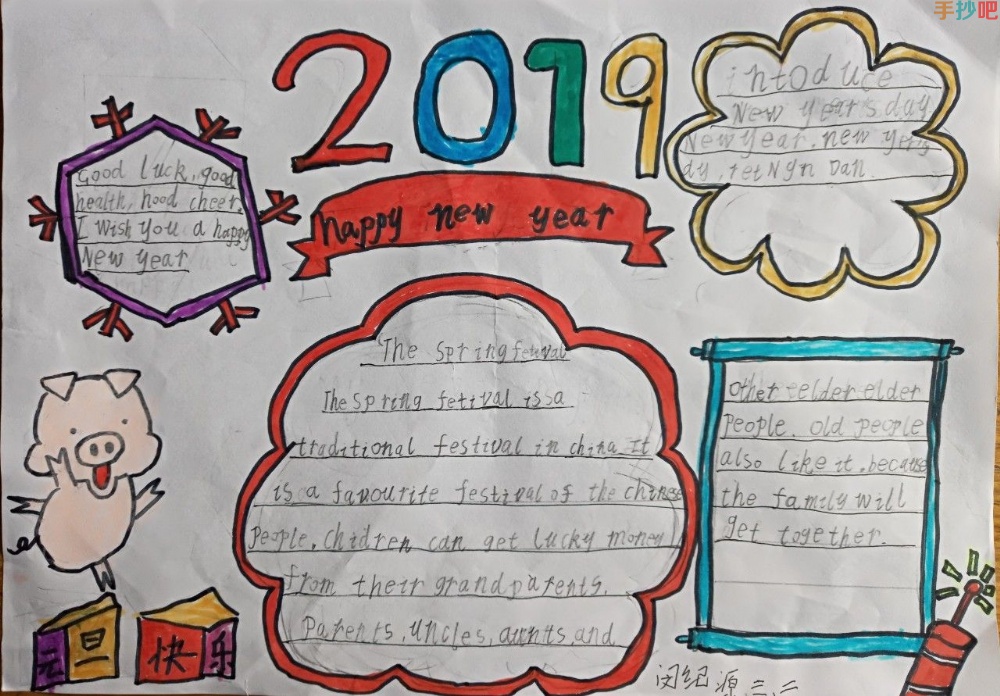 手抄吧
2019
happy new year
Good luck, good
health, hood cheer.
I wish you a happy
New year
intoduce
New year's day
New year. new
dy, Tet Nyn Dan.
The Spring fetival
The Spring fetival is a
traditional festival in china. It
is a favourite festival of the chinese
People. Children can get lucky money
from their grandparents.
Parents, uncles, auntts, and
other eelder elder
People. old people
also like it. because
the family will
get together.
元旦快乐
闵纪源 三